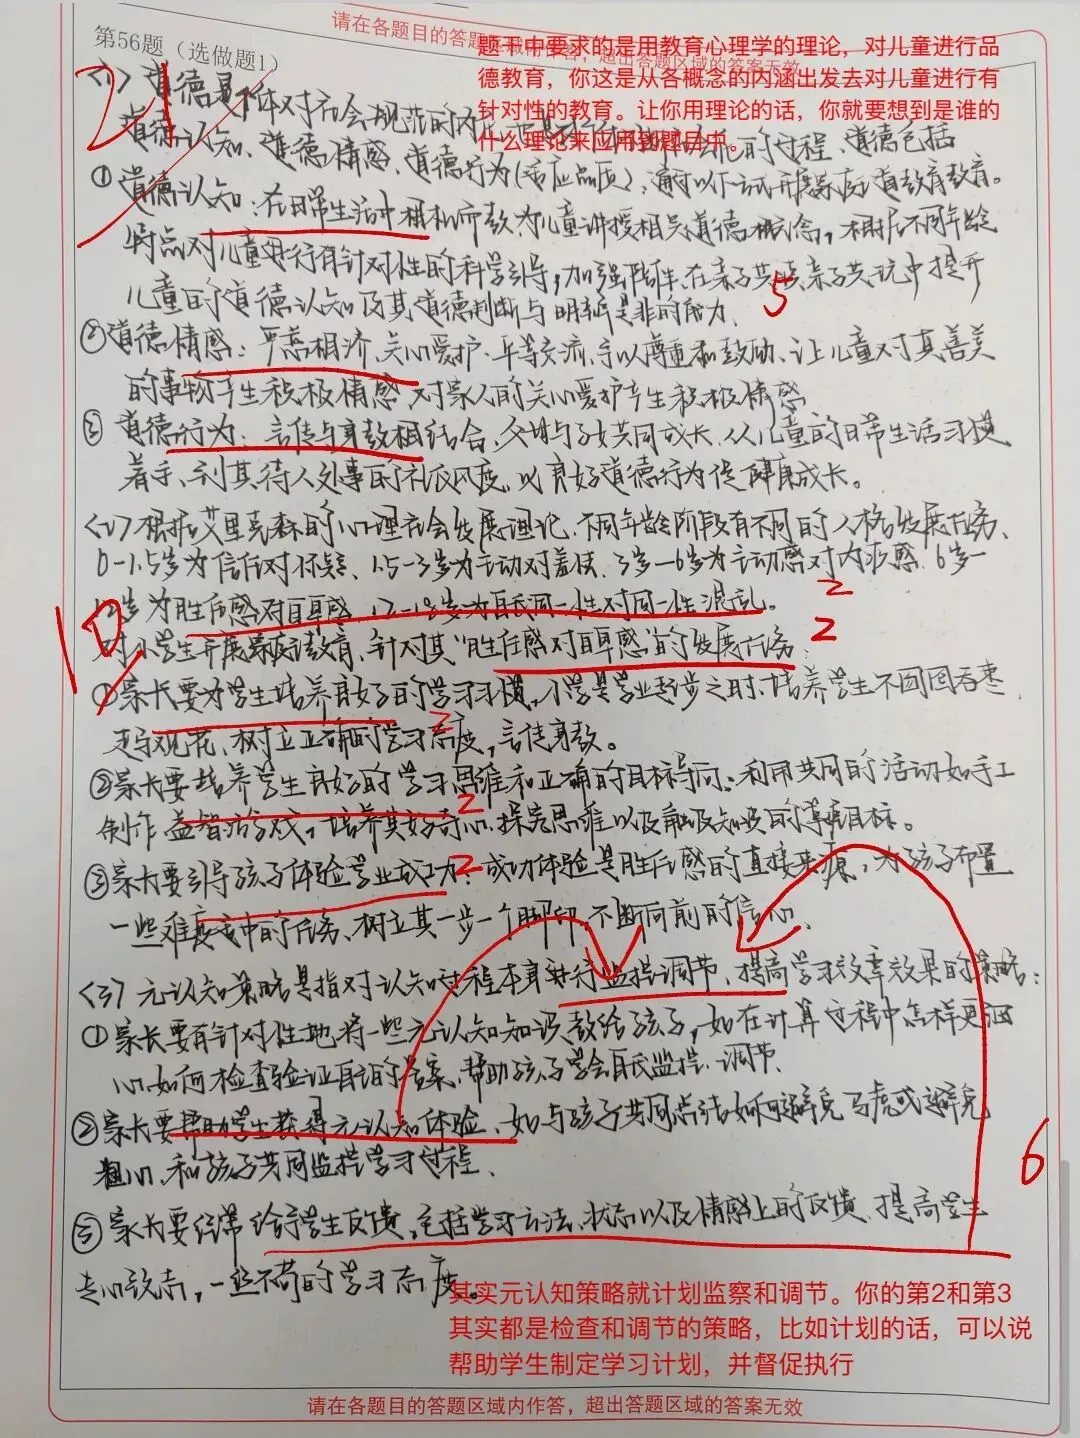 请在各题目的答题区域内作答，超出答题区域的答案无效
第56题（选做题1）
题干中要求的是用教育心理学的理论，对儿童进行品
德教育，你这是从各概念的内涵出发去对儿童进行有
针对性的教育。让你用理论的话，你就要想到是谁的
什么理论来应用到题目中。
21
<1> 道德是个体对社会规范的
道德认知、道德情感、道德行为( 品质)，通过以下方式开展家庭道德教育。
的过程，道德包括
①道德认知：在日常生活中相机而教为儿童讲授相关道德概念，根据不同年龄
特点对儿童进行有针对性的科学引导，加强陪伴、在亲子共读亲子共玩中提升
儿童的道德认知及其道德判断与明辨是非的能力。
5
②道德情感：严慈相济、关心爱护、平等交流、予以尊重和鼓励、让儿童对真善美
的事物产生积极情感、对家人的关心爱护产生积极情感
③道德行为：言传与身教相结合，父母与子女共同成长、从儿童的日常生活习惯
着手、到其待人处事的礼仪风度，以良好道德行为促健康成长。
<2>根据艾里克森的心理社会发展理论、不同年龄阶段有不同的人格发展任务、
0-1.5岁为信任对怀疑、1.5-3岁为主动对羞怯、3岁-6岁为主动感对内疚感、6岁-
12岁为胜任感对自卑感、12-18岁为自我同一性对同一性混乱。
2
10
对小学生开展家庭教育、针对其“胜任感对自卑感”的发展任务：
2
①家长要为学生培养良好的学习习惯，小学是学业起步之时、培养学生不囫囵吞枣、
走马观花、树立正确的学习态度，言传身教。
2
②家长要培养学生良好的学习思维和正确的目标导向：利用共同的活动如手工
制作、益智游戏，培养其好奇心、探究思维以及 知识的 目标。
2
③家长要引导孩子体验学业成功：成功体验是胜任感的直接来源，为孩子布置
2
一些难度适中的任务、树立其一步一个脚印、不断向前的信心、
<3>元认知策略是指对认知过程本身进行监控调节、提高学习效率效果的策略：
①家长要有针对性地将一些元认知知识教给孩子，如在计算过程中怎样更细
心、如何检查验证自己的答案、帮助孩子学会自我监控、调节、
②家长要帮助学生获得元认知体验、如与孩子共同总结如何避免马虎或避免
粗心、和孩子共同监控学习过程、
6
③家长要经常给予学生反馈，包括学习方法、状态以及情感上的反馈、提高学生
专心致志，一丝不苟的学习态度。
其实元认知策略就计划监察和调节。你的第2和第3
其实都是检查和调节的策略，比如计划的话，可以说
帮助学生制定学习计划，并督促执行
请在各题目的答题区域内作答，超出答题区域的答案无效